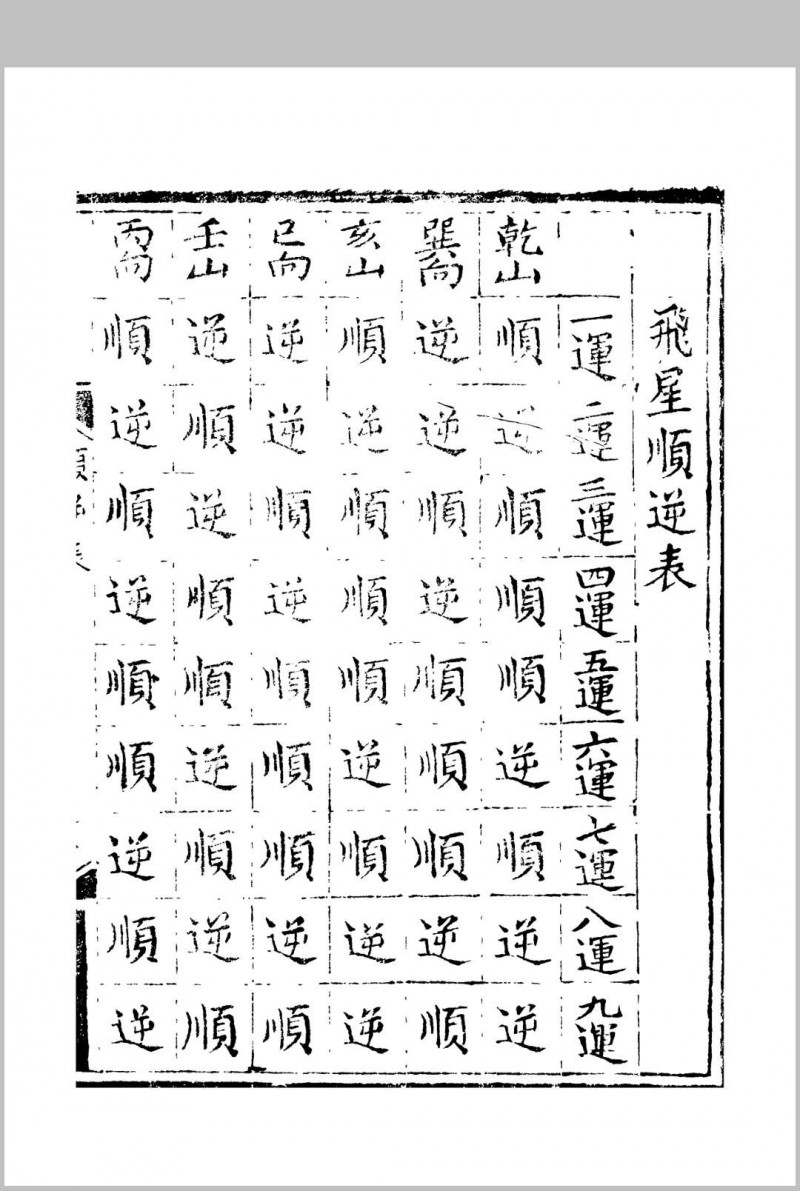 飛星順逆表
一運 二運 三運 四運 五運 六運 七運 八運 九運
乾山 順 逆 順 順 順 逆 順 逆 逆
巽向 逆 逆 順 逆 順 順 順 逆 順
亥山 順 逆 順 順 順 逆 順 逆 逆
巳向 逆 逆 順 逆 順 順 順 逆 順
壬山 逆 順 逆 順 順 逆 順 逆 順
丙向 順 逆 順 逆 順 順 逆 順 逆